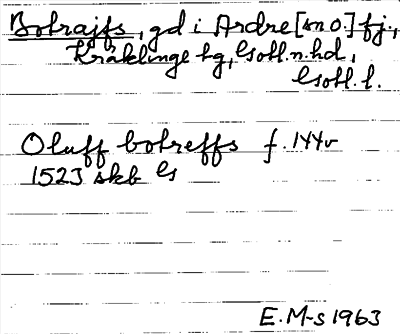 Botrajfs, gd i Ardre [sn o.] fj.,
Kräklinge tg, Gotl. n. hd,
Gotl. l.
Oluff botreffs f. 144v
1523 skb G
E. M-s 1963